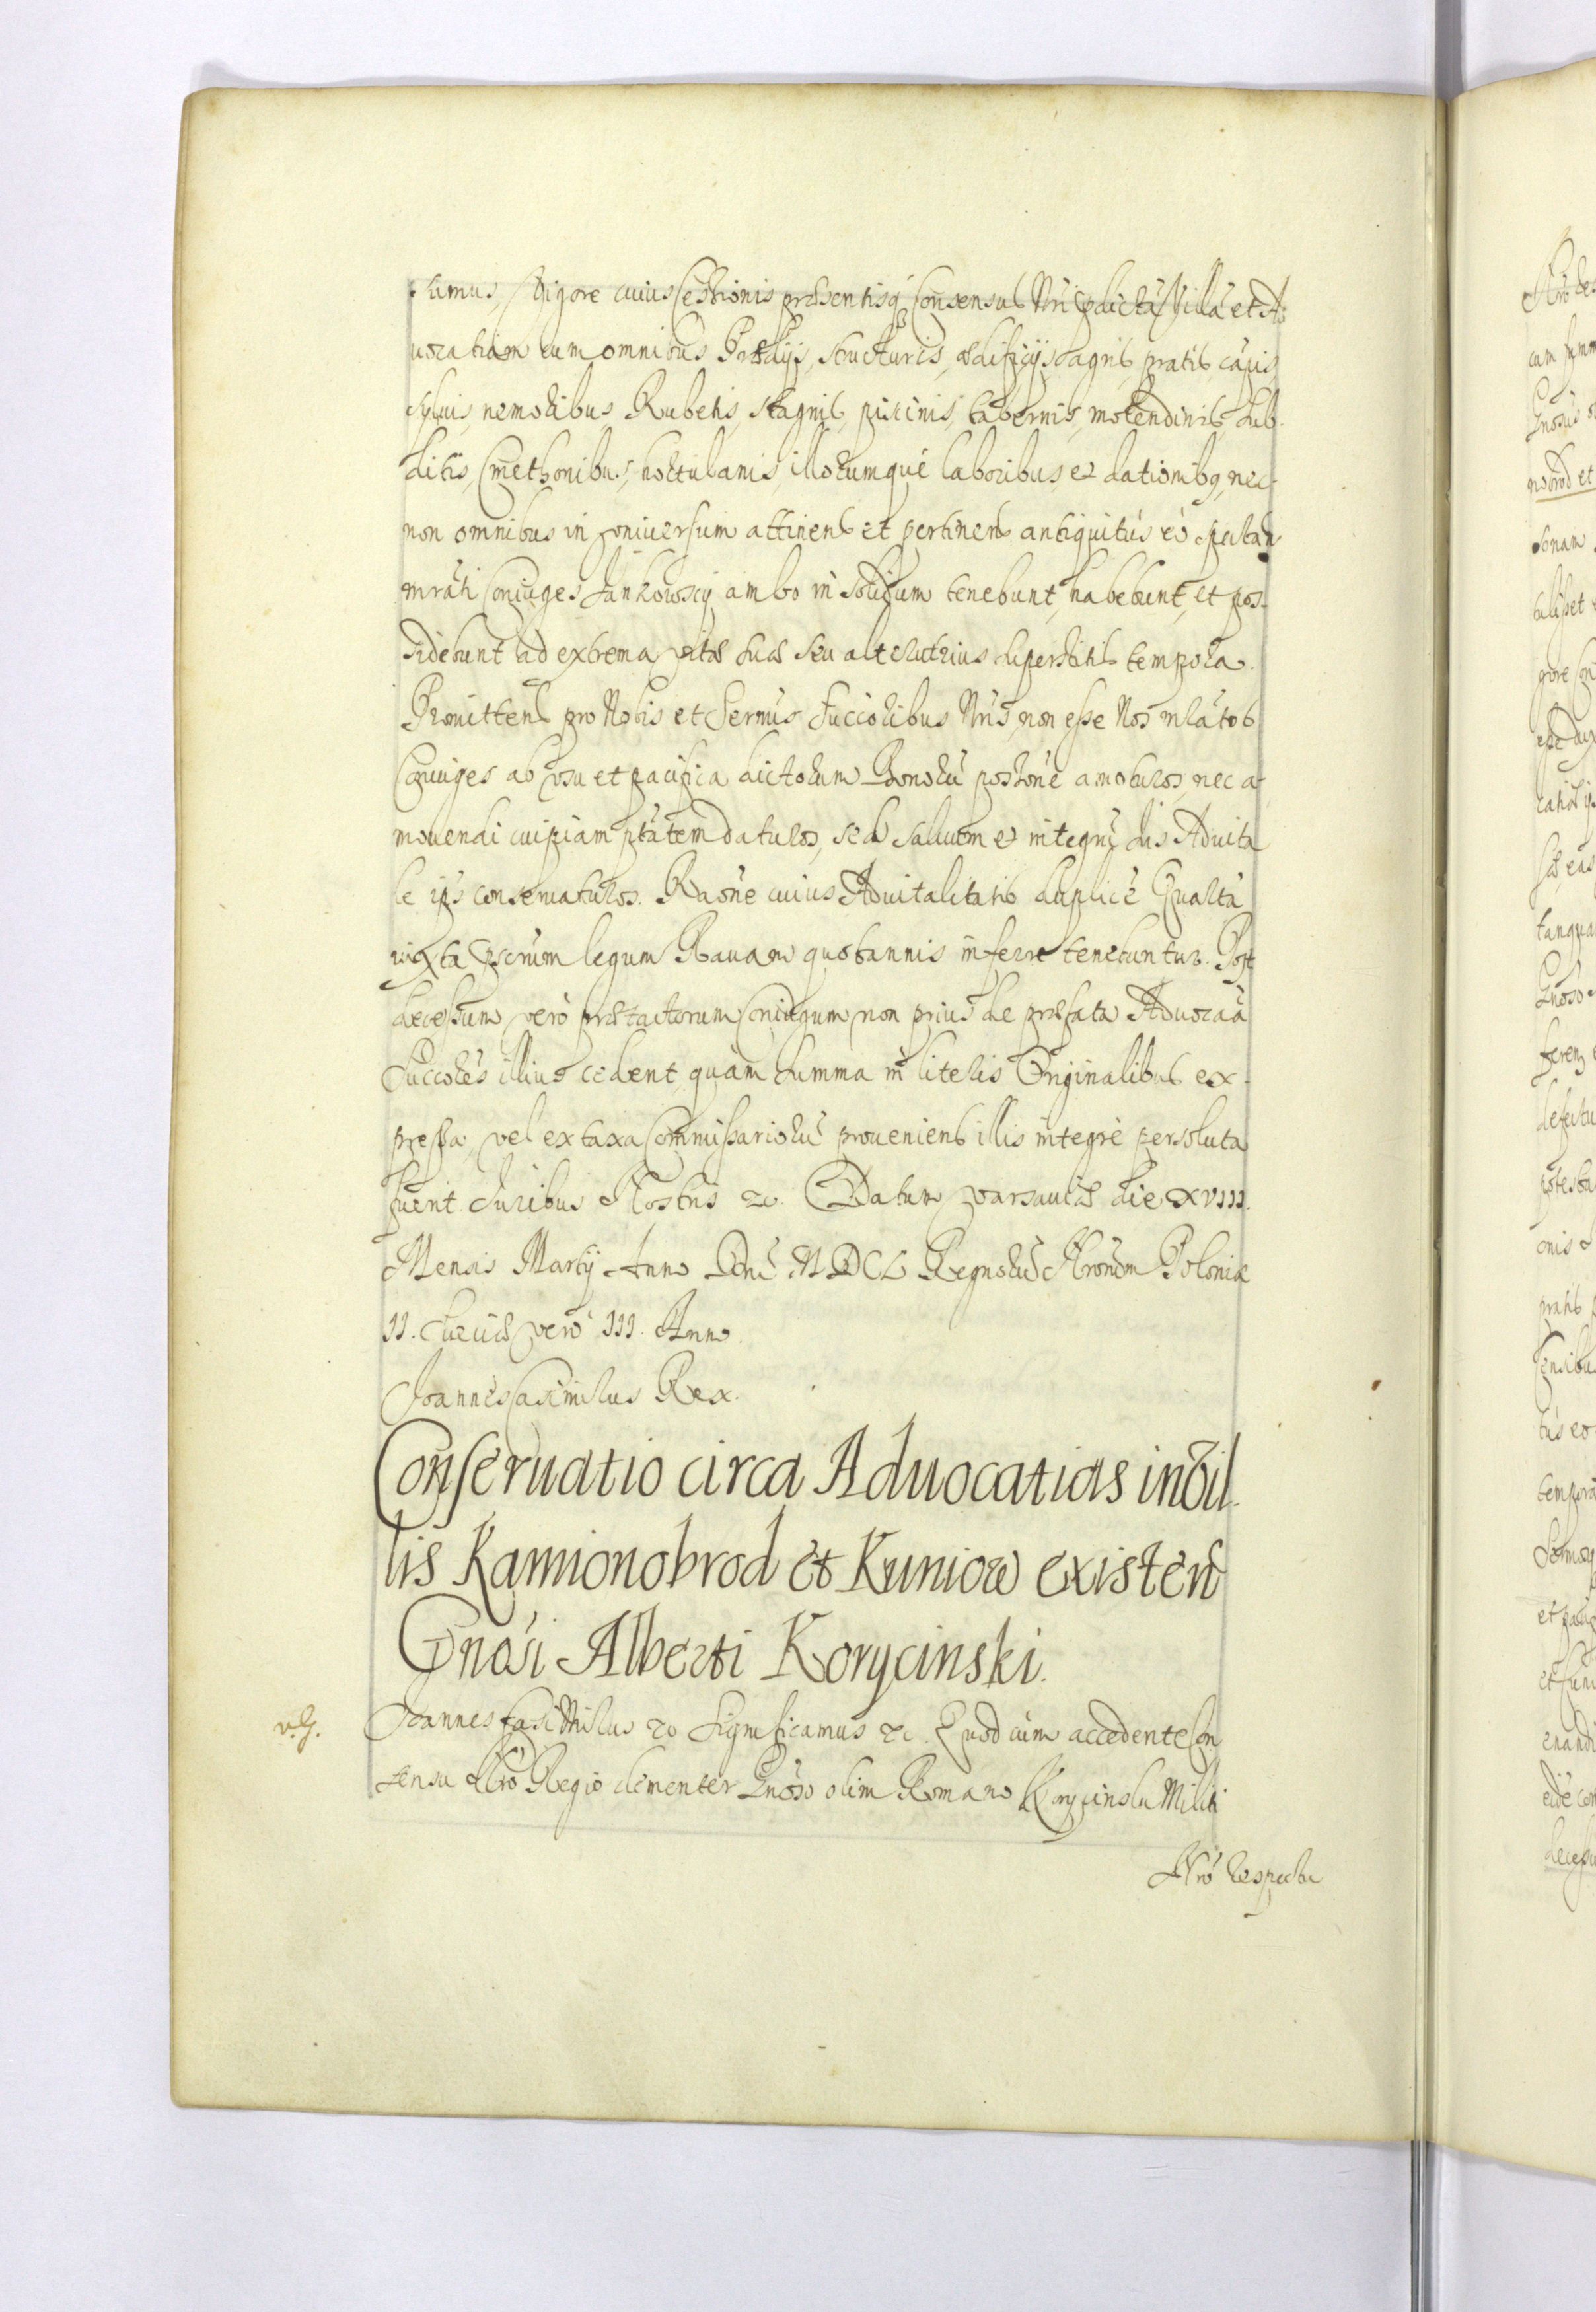 rimus, Vigore cuius Cessionis præsentisq Consensus Nri pdictā Villā et Ad
uocatiam cum omnibus Prædijs, structuris, ædificijs agris, pratis, cāpis
syluis, nemoribus Rubetis, stagnis, piscinis, tabernis, molendinis, sub-
ditis, Cmethonibus, hortulanis, illorumque laboribus, et dationibq, nec
non omnibus in vniuersum attinens et pertinens antiquitus eò spectan
mrāti Coniuges Jankowscij ambo in solidum tenebunt, habebunt, et pos-
sidebunt ad extrema vitæ suæ seu alterutrius superstitis tempora.
Promittens pro Nobis et Sermis Succoribus Nris, non esse Nos mlātos
Coniuges ab vsu et pacifica dictorum Bonorū possone amoturos, nec a-
mouendi cuipiam ptātem daturos, sed saluum et integrū Ius Aduita
le ijs conseruaturos. Raōne cuius Aduitalitatis duplicē Quartā
iuxta pscrum legum Rauam quotannis inferre tenebuntur. Post
decessum vero prætactorum Coniugum non prius de præfata Aduocaā
Succores illius cedent, quam summa in literis Originalibus ex-
pressa, vel ex taxa Commissariorū proueniens illis integrè persoluta
fuerit. Iuribus Nostris &c. Datum Varsauiæ die XVIII.
Mensis Martij Anno Dnī MDCL Regnorū Nrorum Poloniæ
II. Sueciæ verò III. Anno.
Joannes Casimirus Rex.
Conseruatio circa Aduocatias in Vil-
lis Kamionobrod et Kuniow existen
Gnosi Alberti Korycinski.
v. G. Joannes Casimirus &c Significamus &c. Quod cum accedente Con
sensu Nro Regio clementer Gnoso olim Romano Korycinski Militi
Nro respectu